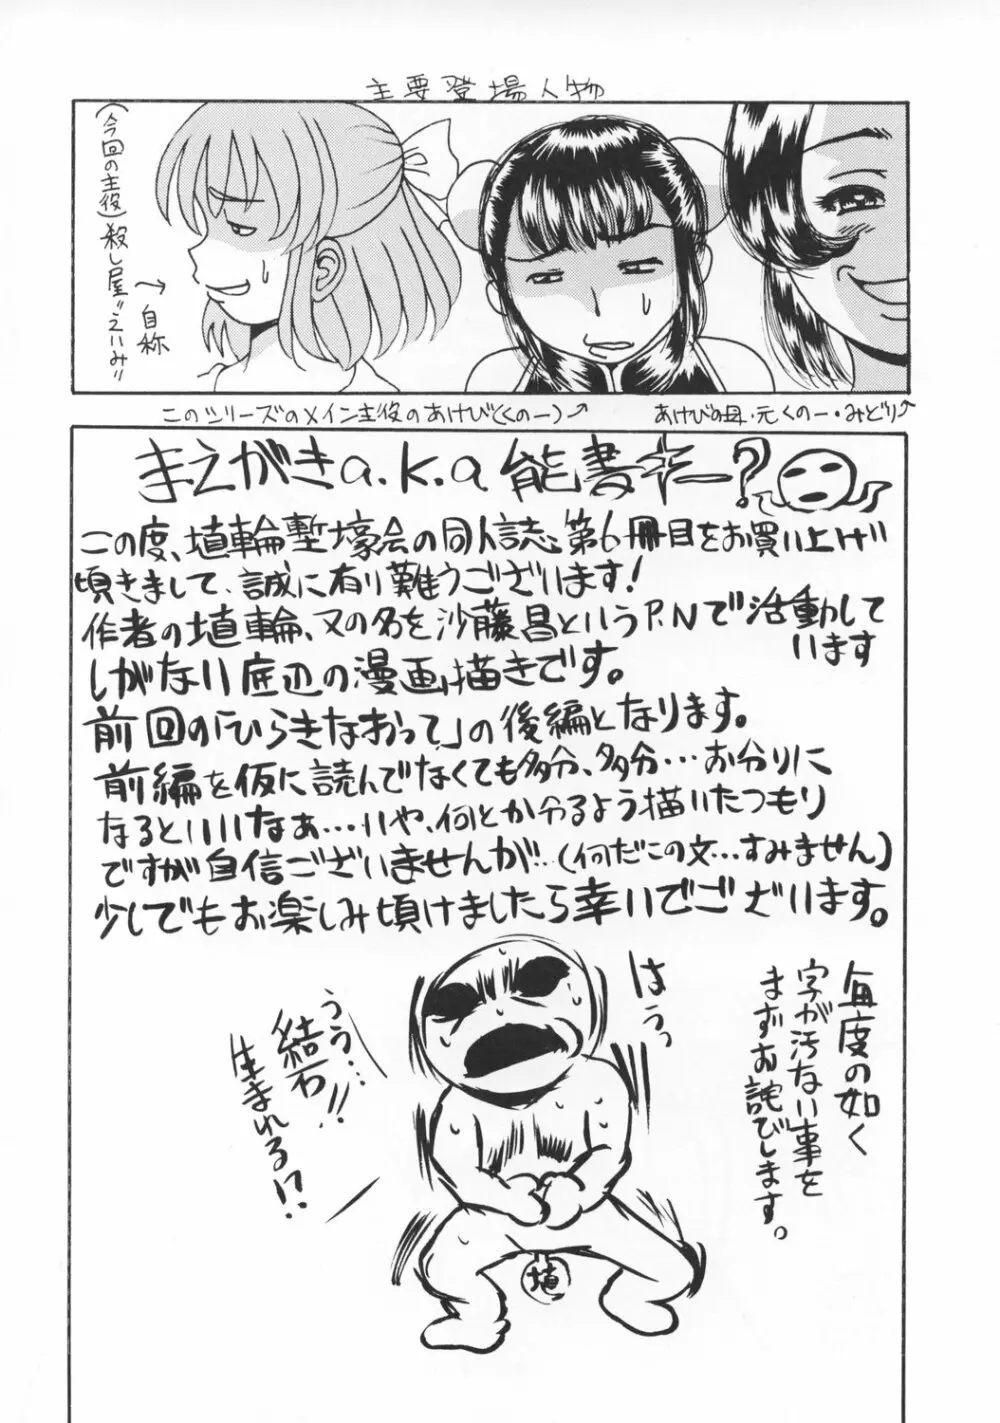 主要登場人物
(今回の主役)殺し屋"えいみ"
→自称
このシリーズのメイン主役のあけび(くの一)↗
あけびの母・元くの一・みどり↗
まえがきa.k.a能書キー?
この度、埴輪塹壕会の同人誌、第6冊目をお買い上げ
頃きまして、誠に有り難うございます!
作者の埴輪、又の名を沙藤昌というP.Nで活動して
います
しがない底辺の漫画描きです。
前回の「ひらきなおって」の後編となります。
前編を仮に読んでなくても多分、多分…お分りに
なるといいなぁ…いや、何とか分るよう描いたつもり
ですが自信ございませんが…(何だこの文…すみません)
少しでもお楽しみ頃けましたら幸いでございます。
毎度の如く
字が汚ない事を
まずお詫びします。
はうっ
うう…
結石!!
生まれる!?
埴